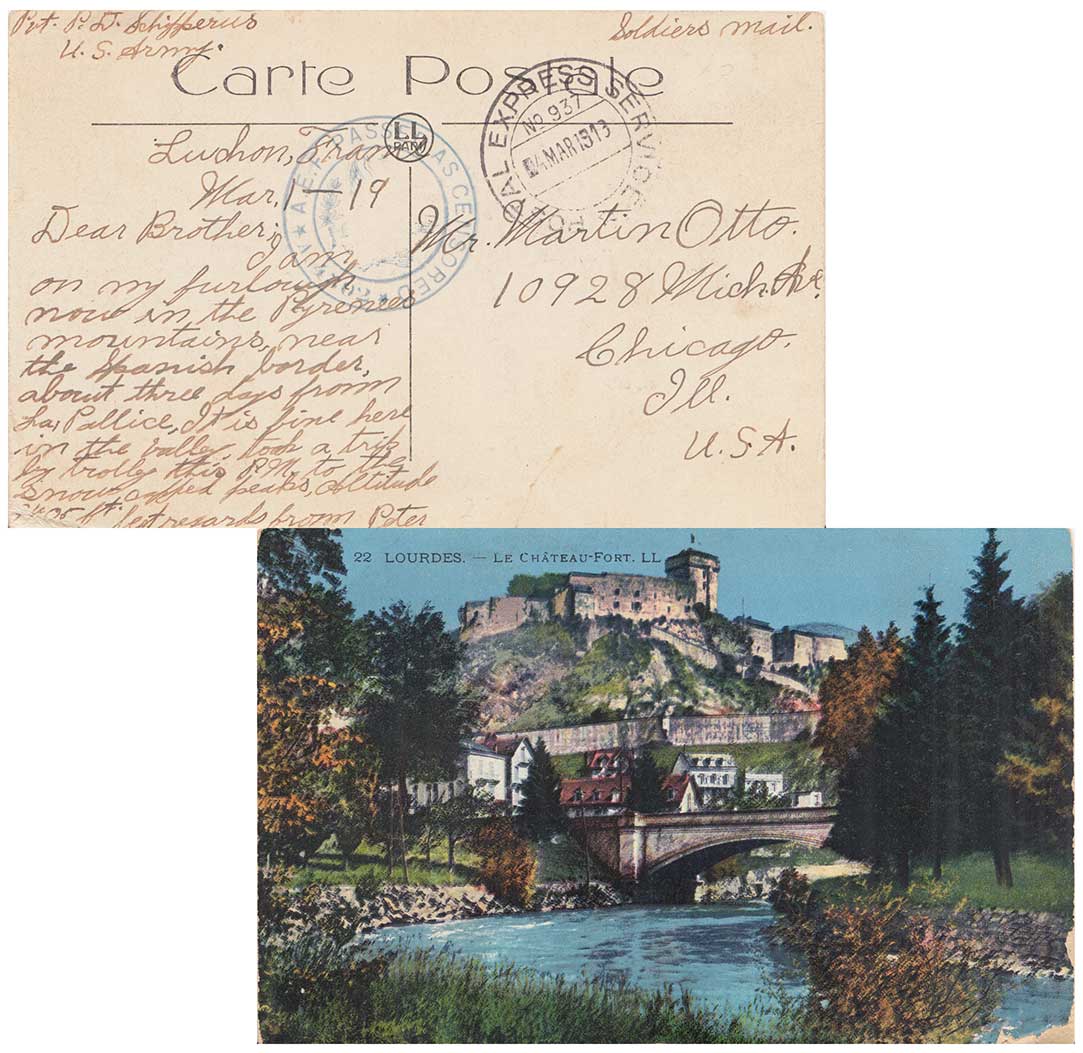 Pvt. P. D. Schipperus
U. S. Army.
Soldiers mail.
Carte Postale
LL
PARIS
No 937
4 MAR 1913
EXPRESS SERVICE
A.E.F. PASSED AS CENSORED
Luchon, France
Mar. 1-19
Dear Brother;
I am
on my furlough
now in the Pyrenees
mountains, near
the Spanish border,
about three days from
La, Pallice, It is fine here
in the valley, took a trip
by trolly this P.M. to the
Snow capped peaks, altitude
ft. regards from Peter
Mr. Martin Otto.
10928 Mich Ave.
Chicago.
Ill.
U.S.A.
22 LOURDES. — LE CHÂTEAU-FORT. LL